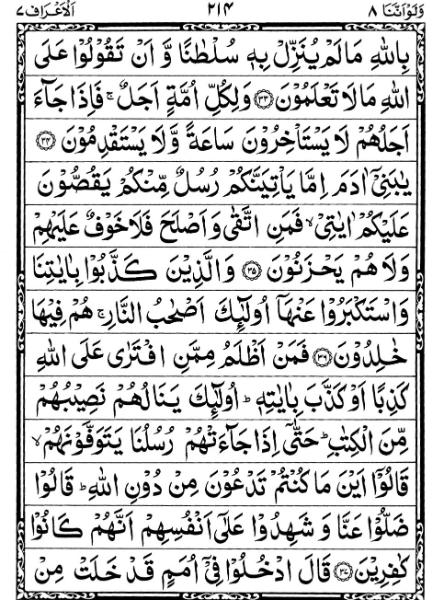 وَلَوْ اَنَّنَا ٨ ٢١٤ اَلْاَعْرَاف ٧
بِاللّٰهِ مَا لَمْ يُنَزِّلْ بِهٖ سُلْطٰنًا وَّ اَنْ تَقُوْلُوْا عَلَى
اللّٰهِ مَا لَا تَعْلَمُوْنَ ﴿۳۳﴾ وَلِكُلِّ اُمَّةٍ اَجَلٌ ۚ فَاِذَا جَآءَ
اَجَلُهُمْ لَا يَسْتَاْخِرُوْنَ سَاعَةً وَّلَا يَسْتَقْدِمُوْنَ ﴿۳۴﴾
يٰبَنِيْۤ اٰدَمَ اِمَّا يَاْتِيَنَّكُمْ رُسُلٌ مِّنْكُمْ يَقُصُّوْنَ
عَلَيْكُمْ اٰيٰتِيْ ۙ فَمَنِ اتَّقٰى وَاَصْلَحَ فَلَا خَوْفٌ عَلَيْهِمْ
وَلَا هُمْ يَحْزَنُوْنَ ﴿۳۵﴾ وَالَّذِيْنَ كَذَّبُوْا بِاٰيٰتِنَا
وَاسْتَكْبَرُوْا عَنْهَاۤ اُولٰٓئِكَ اَصْحٰبُ النَّارِ ۚ هُمْ فِيْهَا
خٰلِدُوْنَ ﴿۳۶﴾ فَمَنْ اَظْلَمُ مِمَّنِ افْتَرٰى عَلَى اللّٰهِ
كَذِبًا اَوْ كَذَّبَ بِاٰيٰتِهٖ ؕ اُولٰٓئِكَ يَنَالُهُمْ نَصِيْبُهُمْ
مِّنَ الْكِتٰبِ ؕ حَتّٰۤى اِذَا جَآءَتْهُمْ رُسُلُنَا يَتَوَفَّوْنَهُمْ ۙ
قَالُوْۤا اَيْنَ مَا كُنْتُمْ تَدْعُوْنَ مِنْ دُوْنِ اللّٰهِ ؕ قَالُوْا
ضَلُّوْا عَنَّا وَ شَهِدُوْا عَلٰۤى اَنْفُسِهِمْ اَنَّهُمْ كَانُوْا
كٰفِرِيْنَ ﴿۳۷﴾ قَالَ ادْخُلُوْا فِيْۤ اُمَمٍ قَدْ خَلَتْ مِنْ